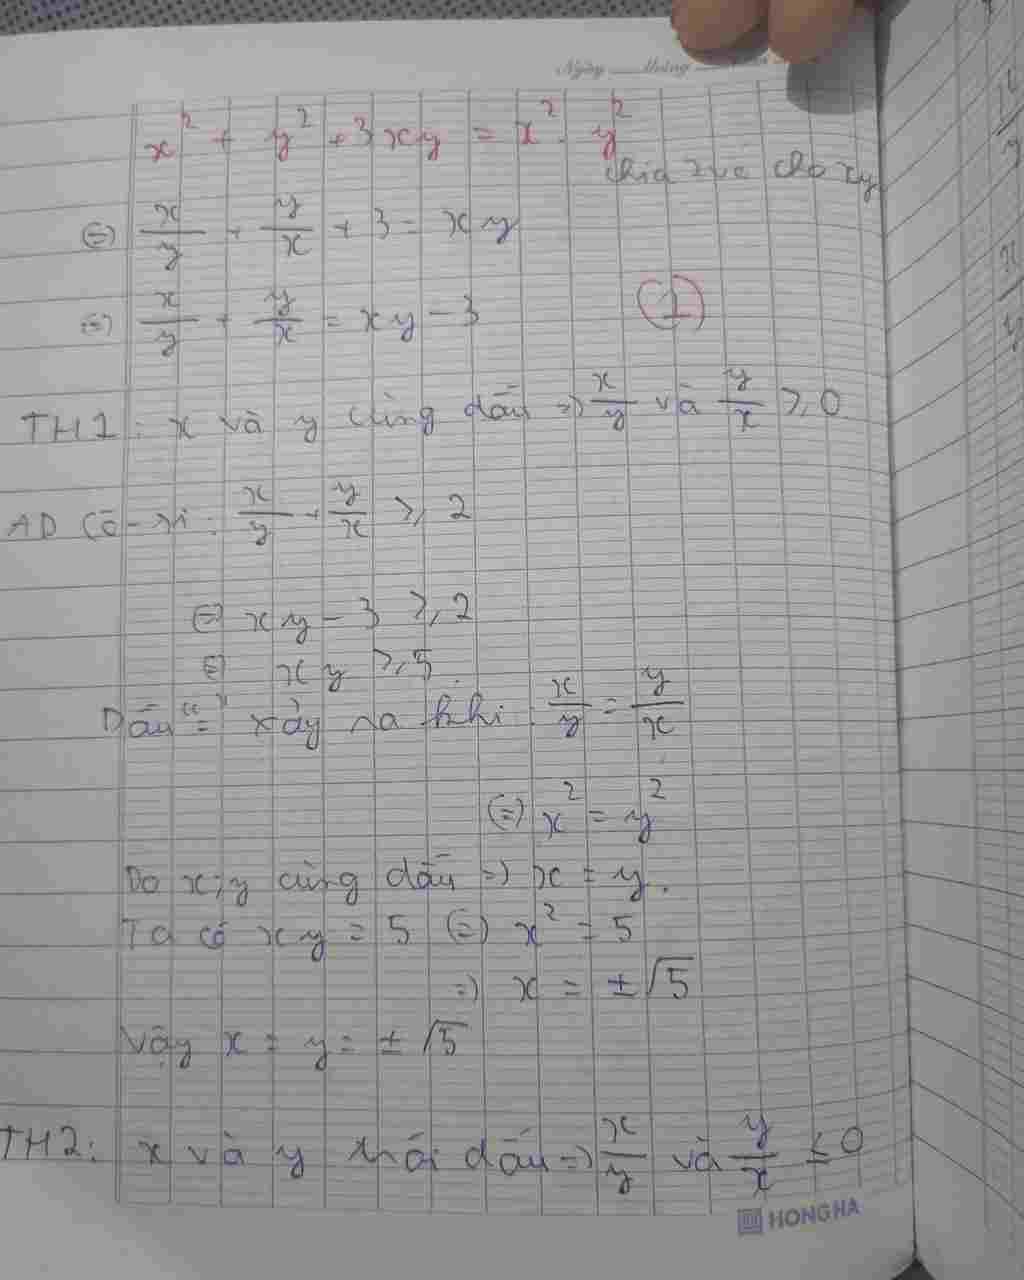 Ngày Tháng
x² + y² + 3xy = x² . y²
chia 2 vế cho xy
(=) x/y + y/x + 3 = xy
(=) x/y + y/x = xy - 3
1
TH1: x và y cùng dấu => x/y và y/x ≥ 0
AD Cô-xi: x/y + y/x ≥ 2
(=) xy - 3 ≥ 2
(=) xy ≥ 5
Dấu "=" xảy ra khi x/y = y/x
(=) x² = y²
Do x;y cùng dấu => x = y.
Ta có xy = 5 (=) x² = 5
=) x = ±√5
Vậy x = y = ±√5
TH2: x và y trái dấu => x/y và y/x ≤ 0
HONG HA